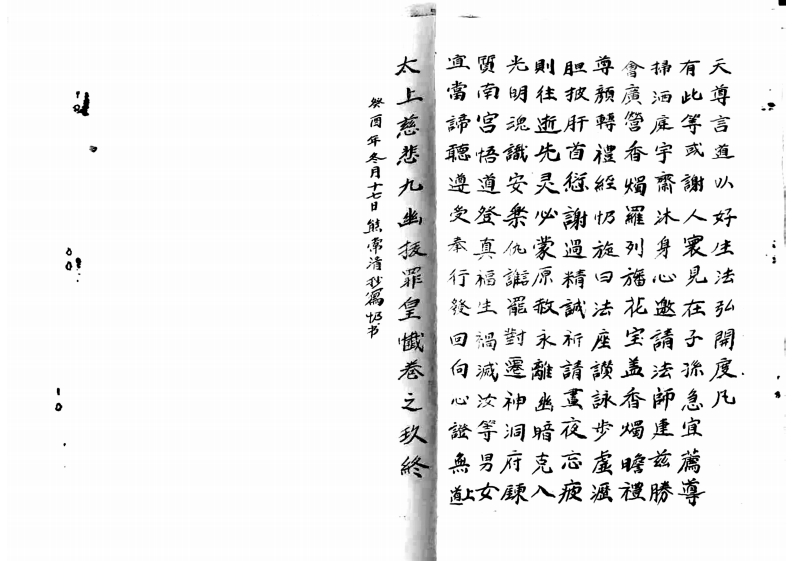 天尊言道以好生法弘開度凡
有此等或謝人寰見在子孫急宜薦尊
掃洒庭宇齋沐身心邀請法師建茲勝
會廣營香燭羅列旛花宝盖香燭瞻禮
尊顏轉禮經忏旋曰法座讚詠步虛瀝
胆披肝首愆謝過精誠祈請晝夜忘疲
則往逝先灵必蒙原赦永離幽暗克入
光明魂識安樂仇讐罷對遷神洞府鍊
質南宮悟道登真福生禍滅汝等男女
宜當諦聽遵受奉行發回向心證無上道
太上慈悲九幽拔罪皇懺卷之玖終
癸酉年冬月十七日熊常清抄寫忏书